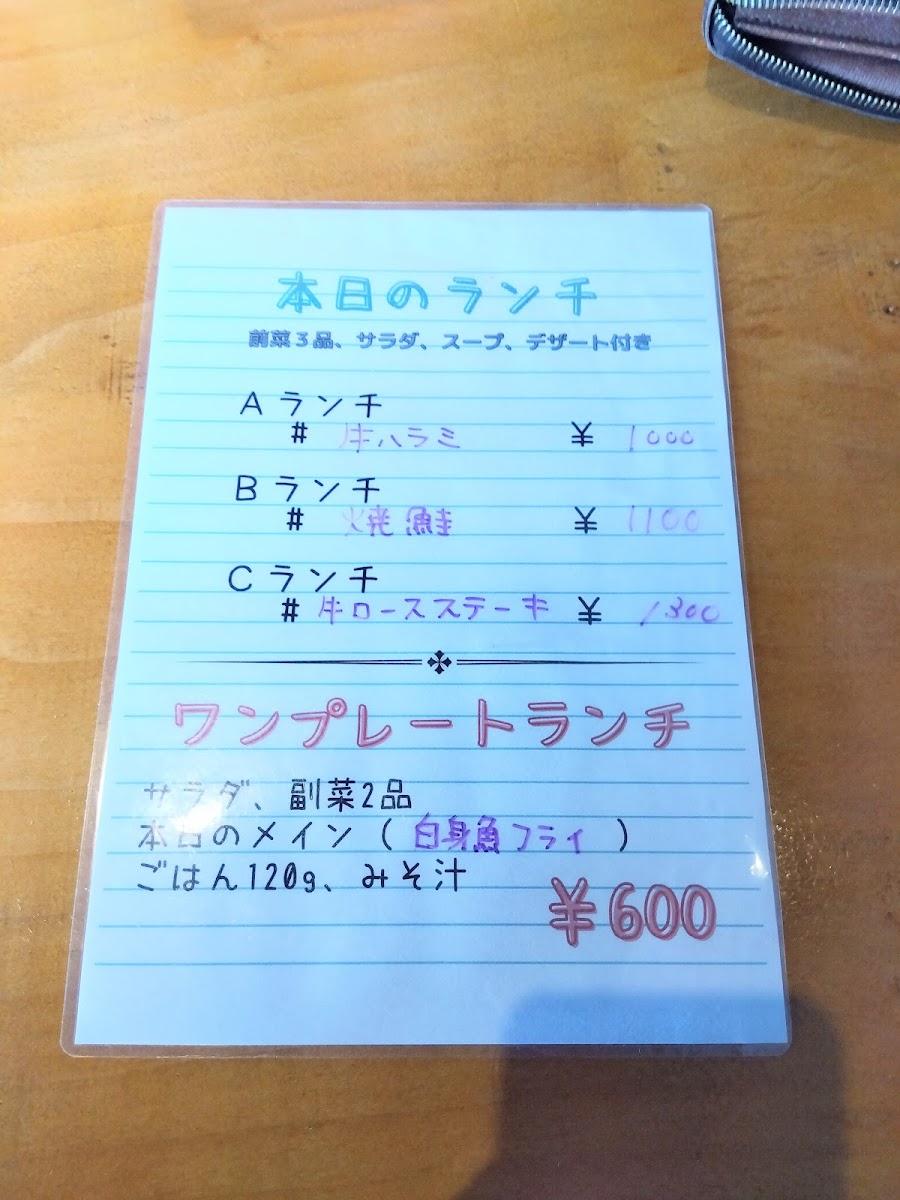 本日のランチ
前菜3品、サラダ、スープ、デザート付き
Aランチ
# 牛ハラミ ¥ 1000
Bランチ
# 焼鮭 ¥ 1100
Cランチ
# 牛ロースステーキ ¥ 1300
ワンプレートランチ
サラダ、副菜2品
本日のメイン ( 白身魚フライ )
ごはん120g、みそ汁
¥600